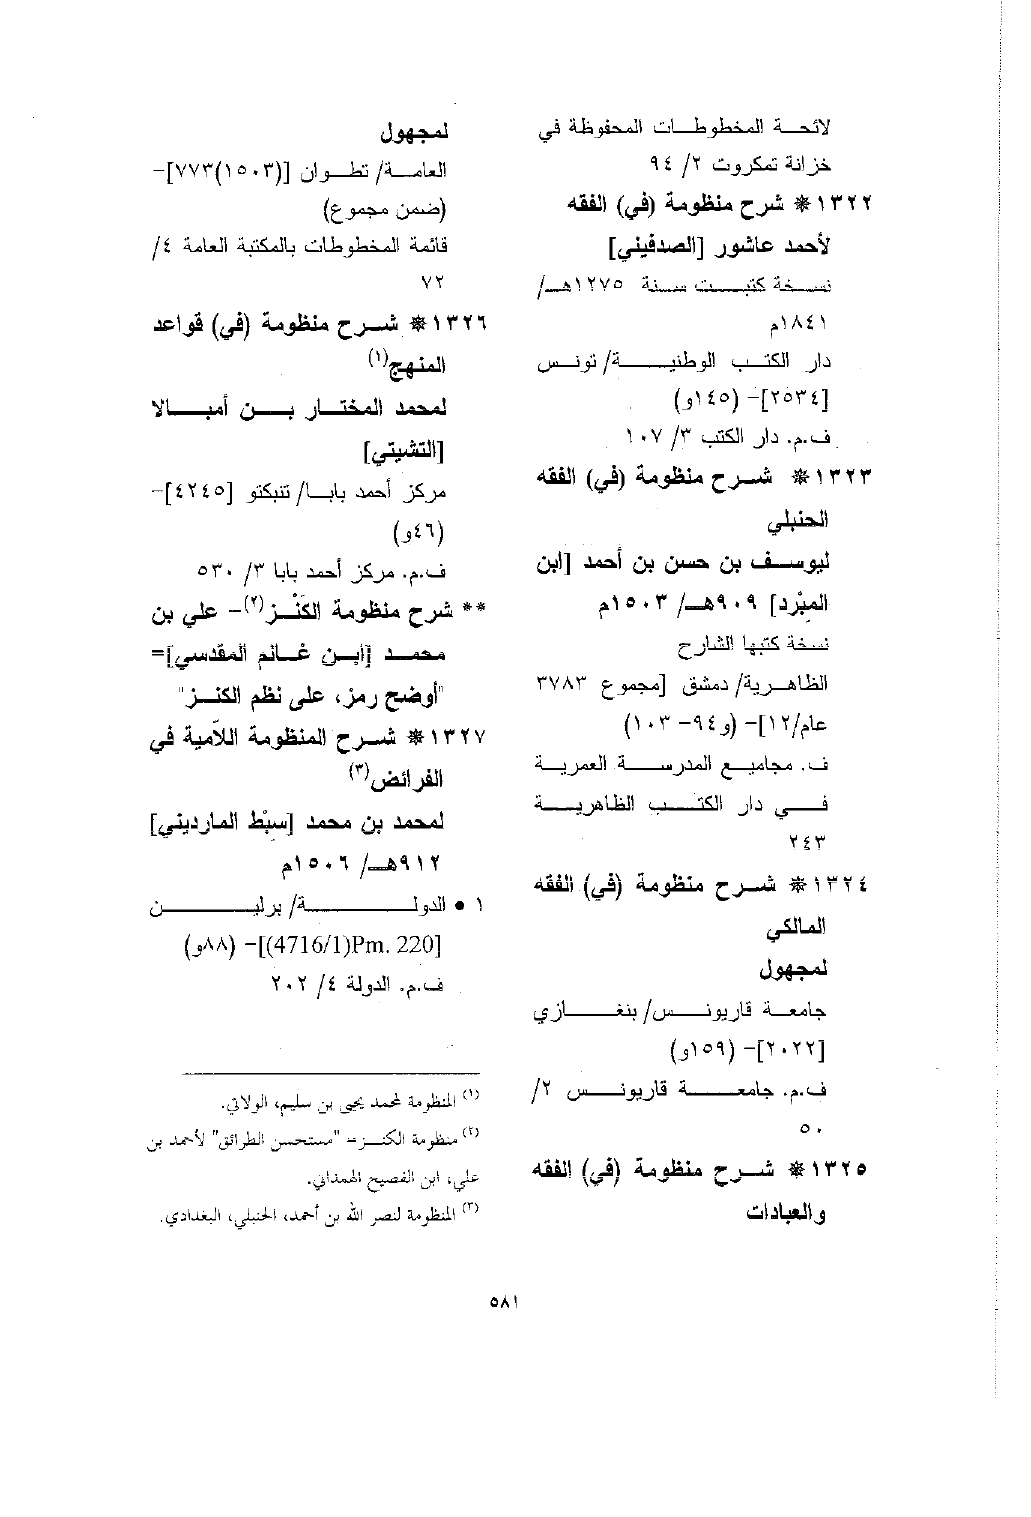 لائحة المخطوطات المحفوظة في
خزانة تمكروت ٢/ ٩٤
١٣٢٢* شرح منظومة (في) الفقه
لأحمد عاشور [الصدفيني]
نسخة كتبت سنة ١٢٧٥هـ/
١٨٤١م
دار الكتب الوطنية/ تونس
[٢٥٣٤]- (١٤٥و)
ف.م. دار الكتب ٣/ ١٠٧
١٣٢٣* شرح منظومة (في) الفقه
الحنبلي
ليوسف بن حسن بن أحمد [ابن
المِبْرد] ٩٠٩هـ/ ١٥٠٣م
نسخة كتبها الشارح
الظاهرية/ دمشق [مجموع ٣٧٨٣
عام/١٢]- (و٩٤- ١٠٣)
ف. مجاميع المدرسة العمرية
في دار الكتب الظاهرية
٢٤٣
١٣٢٤* شرح منظومة (في) الفقه
المالكي
لمجهول
جامعة قاريونس/ بنغازي
[٢٠٢٢]- (١٥٩و)
ف.م. جامعة قاريونس ٢/
٥٠
١٣٢٥* شرح منظومة (في) الفقه
والعبادات
لمجهول
العامة/ تطوان [(١٥٠٣)٧٧٣]-
(ضمن مجموع)
قائمة المخطوطات بالمكتبة العامة ٤/
٧٢
١٣٢٦* شرح منظومة (في) قواعد
المنهج(١)
لمحمد المختار بن أمبالا
[التشيتي]
مركز أحمد بابا/ تنبكتو [٤٢٤٥]-
(٤٦و)
ف.م. مركز أحمد بابا ٣/ ٥٣٠
** شرح منظومة الكَنْز(٢)- علي بن
محمد [ابن غانم المقدسي]=
"أوضح رمز، على نظم الكنز"
١٣٢٧* شرح المنظومة اللاَمية في
الفرائض(٣)
لمحمد بن محمد [سِبْط المارديني]
٩١٢هـ/ ١٥٠٦م
١ • الدولة/ برلين
[4716/1)Pm. 220)]- (٨٨و)
ف.م. الدولة ٤/ ٢٠٢
(١) المنظومة لمحمد يحيى بن سليم، الولاتي.
(٢) منظومة الكنز= "مستحسن الطرائق" لأحمد بن
علي، ابن الفصيح الهمداني.
(٣) المنظومة لنصر الله بن أحمد، الحنبلي، البغدادي.
٥٨١